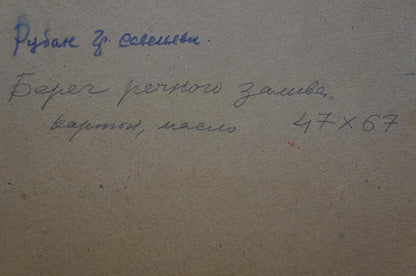 Рубан Гр. Савельевич.
Берег речного залива.
картон, масло 47 × 67